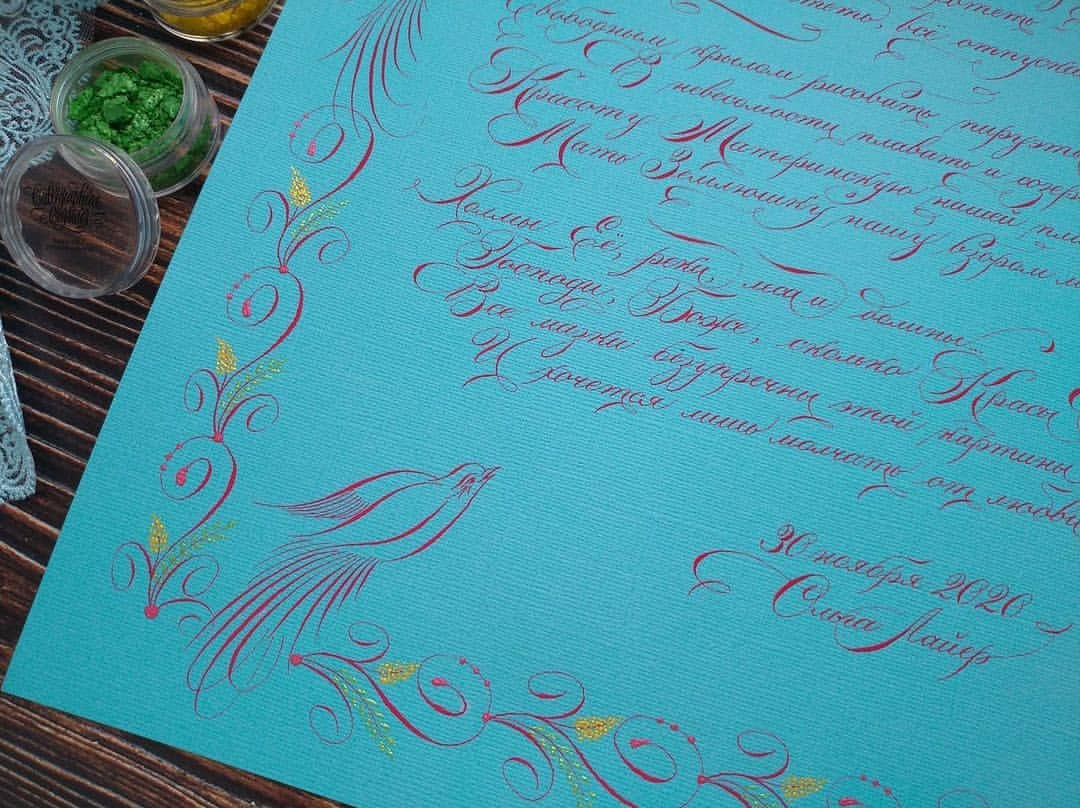 Calligraphic
лететь, всё отпуская
Свободным крылом рисовать пируэты
В невесомости плавать и созер
Красоту Материнскую нашей пла
Мать Землюшку нашу взором
Холмы Её, реки, леса и долины...
Господи, Боже, сколько Красы
Все мазки безупречны этой картины,
И хочется лишь молчать от любви
30 ноября 2020
Ольга Лайер